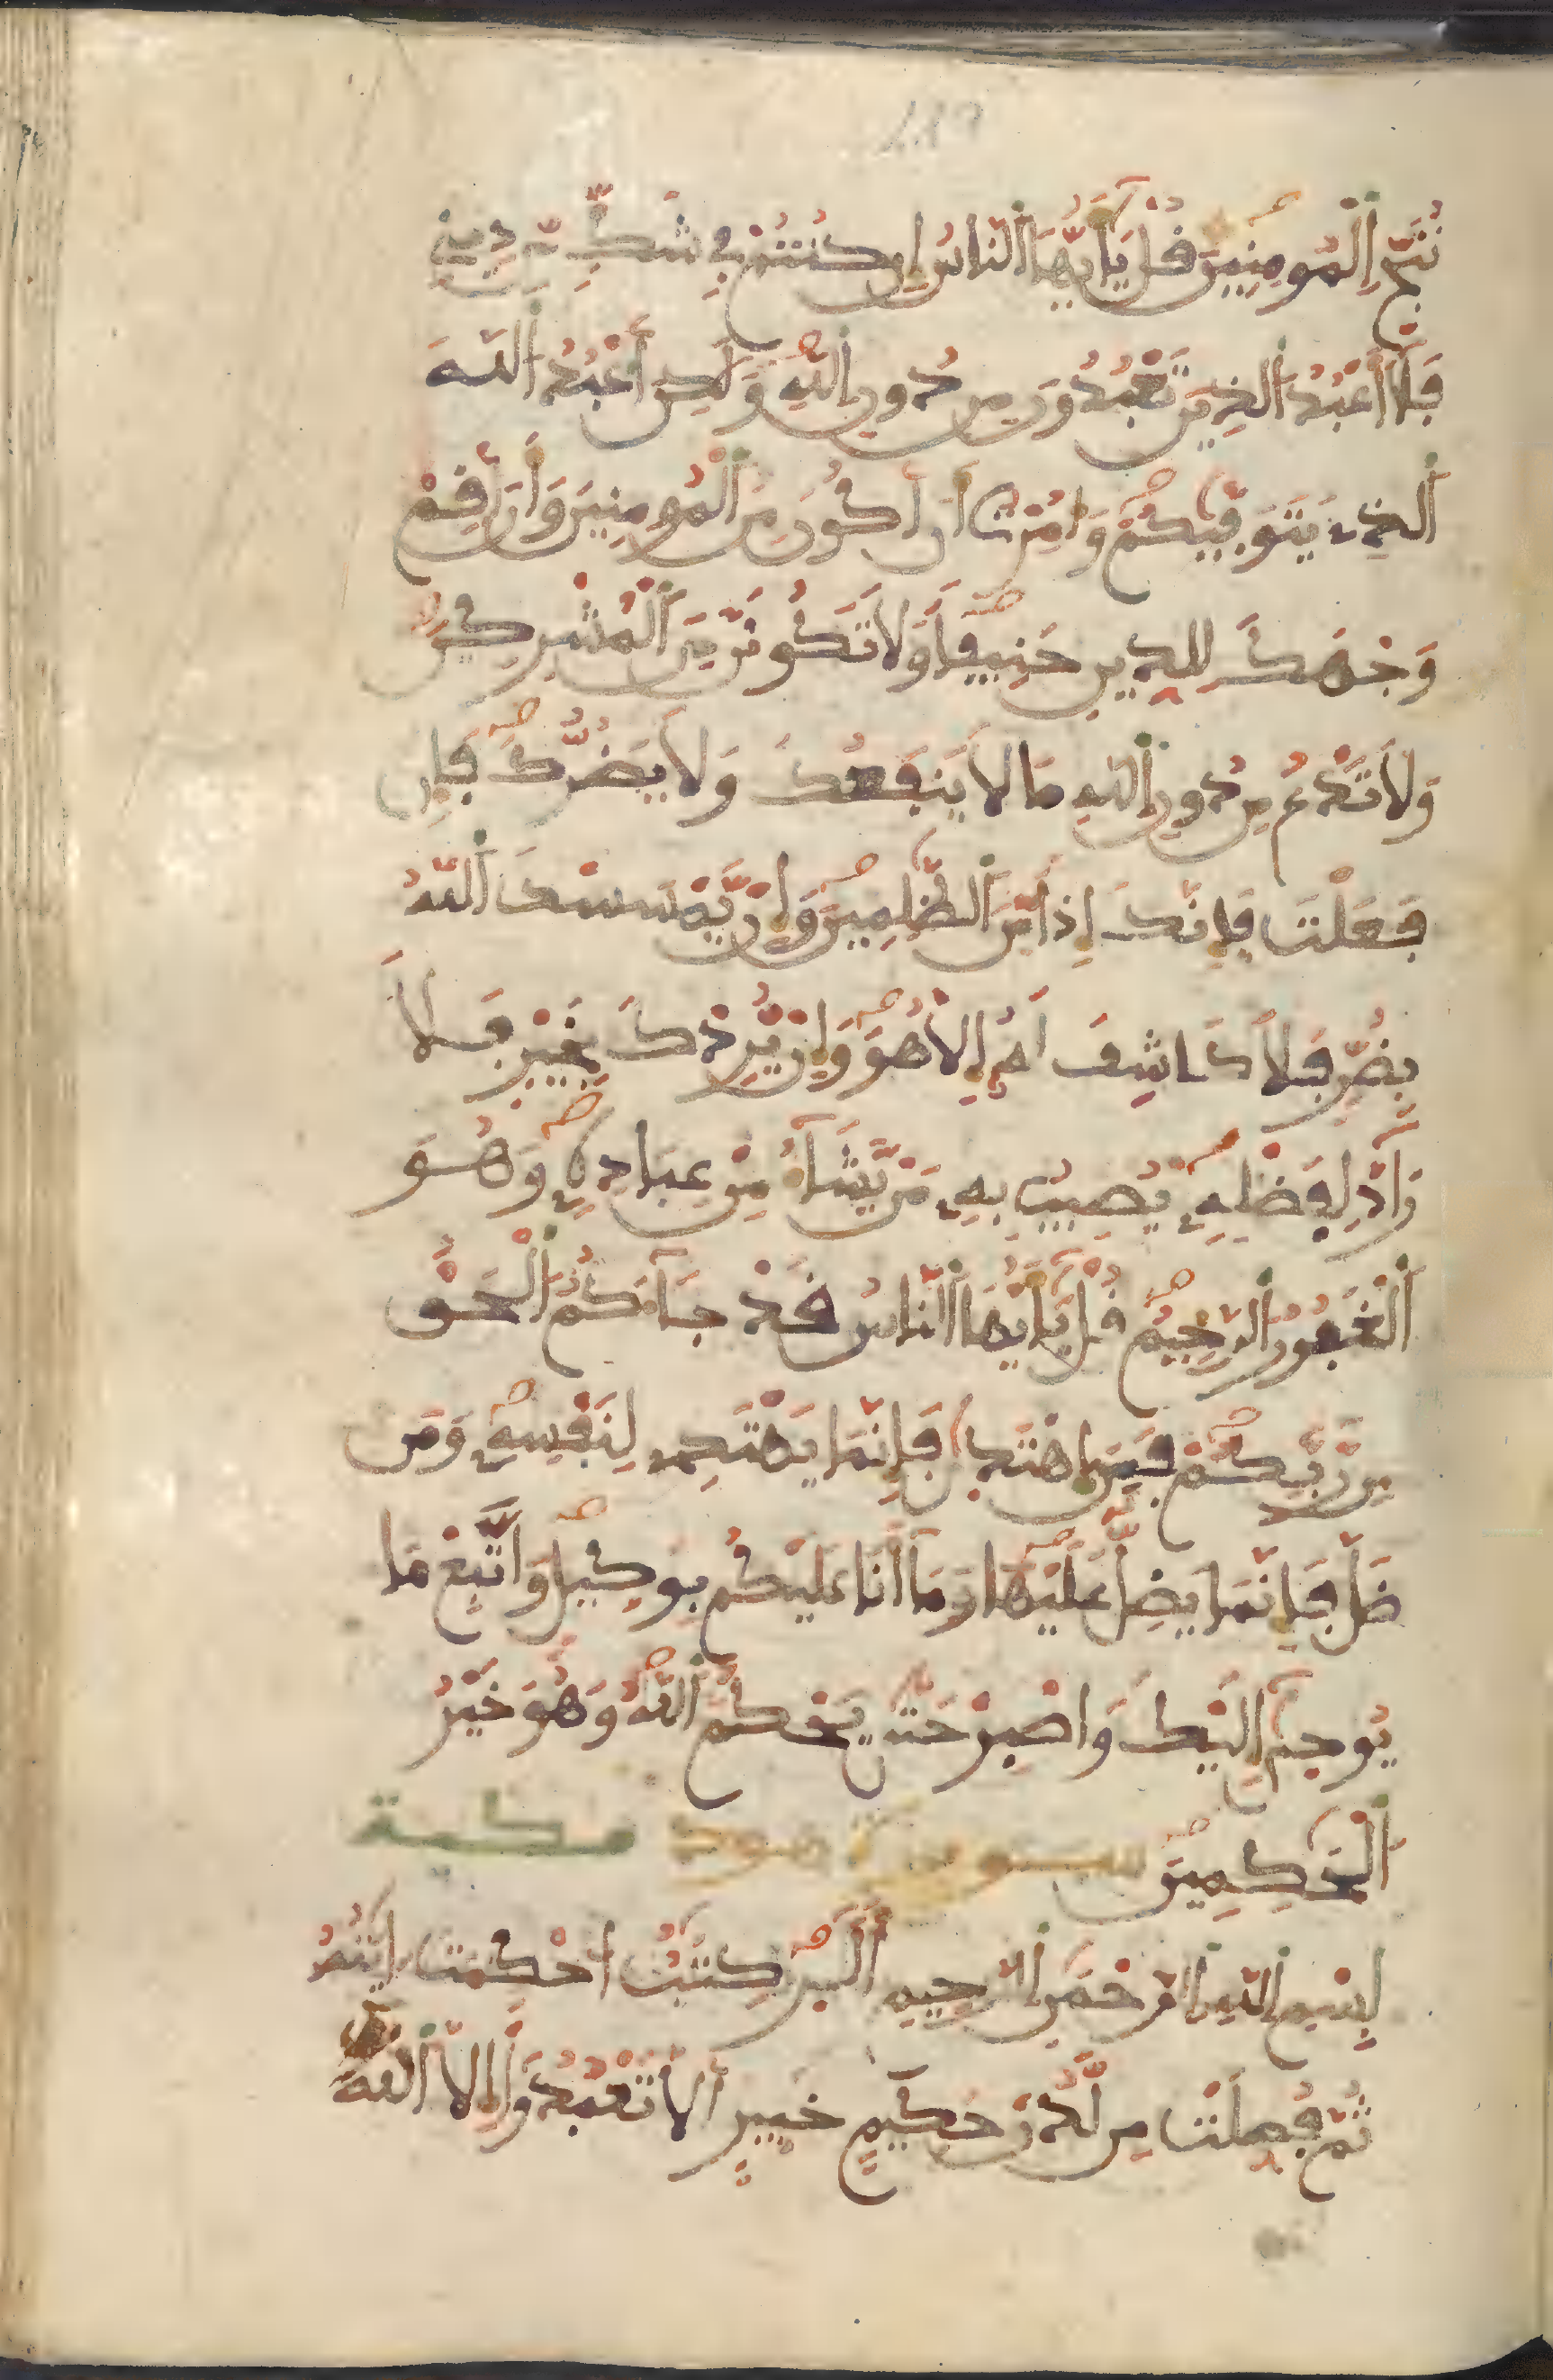 نُنَجِّ اِ۬لْمُومِنِينَ قُلْ يَٰٓأَيُّهَا اَ۬لنَّاسُ إِن كُنتُمْ فِے شَكٍّ مِّن دِينِے
فَلَآ أَعْبُدُ اُ۬لذِينَ تَعْبُدُونَ مِن دُونِ اِ۬للَّهِ وَلَٰكِنَ اَعْبُدُ اُ۬للَّهَ
اَ۬لذِے يَتَوَفّٰيٰكُمْ وَأُمِرْتُ أَنَ اَكُونَ مِنَ اَ۬لْمُومِنِينَ وَأَنَ اَقِمْ
وَجْهَكَ لِلدِّينِ حَنِيفاً وَلَا تَكُونَنَّ مِنَ اَ۬لْمُشْرِكِينَ
وَلَا تَدْعُ مِن دُونِ اِ۬للَّهِ مَا لَا يَنفَعُكَ وَلَا يَضُرُّكَ فَإِن
فَعَلْتَ فَإِنَّكَ إِذاً مِّنَ اَ۬لظَّٰلِمِينَ وَإِنْ يَّمْسَسْكَ اَ۬للَّهُ
بِضُرٍّ فَلَا كَاشِفَ لَهُۥٓ إِلَّا هُوَ وَإِنْ يُّرِدْكَ بِخَيْرٍ فَلَا
رَآدَّ لِفَضْلِهِۦ يُصِيبُ بِهِۦ مَنْ يَّشَآءُ مِنْ عِبَادِهِۦ وَهُوَ
اَ۬لْغَفُورُ اُ۬لرَّحِيمُ قُلْ يَٰٓأَيُّهَا اَ۬لنَّاسُ قَدْ جَآءَكُمُ اُ۬لْحَقُّ
مِن رَّبِّكُمْ فَمَنِ اِ۪هْتَد۪ىٰ فَإِنَّمَا يَهْتَدِے لِنَفْسِهِۦ وَمَن
ضَلَّ فَإِنَّمَا يَضِلُّ عَلَيْهَا وَمَآ أَنَا عَلَيْكُم بِوَكِيلٍ وَاتَّبِعْ مَا
يُوح۪ىٰٓ إِلَيْكَ وَاصْبِرْ حَتَّىٰ يَحْكُمَ اَ۬للَّهُ وَهُوَ خَيْرُ
اُ۬لْحَٰكِمِينَ سورة هود مكية
بِسْمِ اِ۬للَّهِ اِ۬لرَّحْمَٰنِ اِ۬لرَّحِيمِ أَلَٓر۪ كِتَٰبٌ اُحْكِمَتَ اٰيَٰتُهُۥ
ثُمَّ فُصِّلَتْ مِن لَّدُنْ حَكِيمٍ خَبِيرٍ أَلَّا تَعْبُدُوٓاْ إِلَّا اَ۬للَّهَ